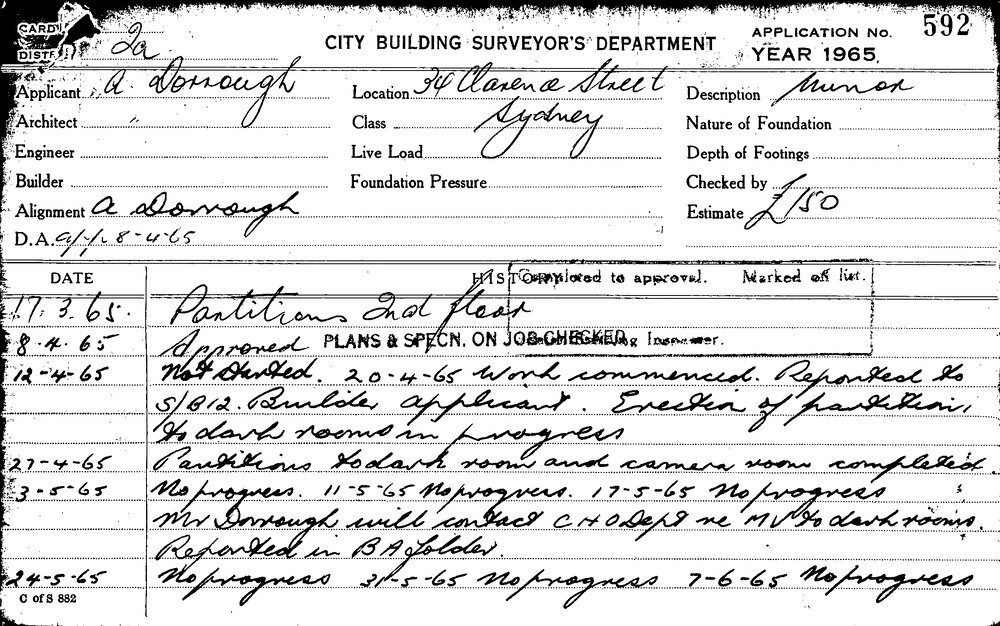 CARD
DISTR
2a
CITY BUILDING SURVEYOR'S DEPARTMENT
APPLICATION No. 592
YEAR 1965.
Applicant A. Dorrough
Location 34 Clarence Street
Description Minor
Architect "
Class Sydney
Nature of Foundation
Engineer
Live Load
Depth of Footings
Builder
Foundation Pressure
Checked by
Alignment A Dorrough
Estimate £150
D.A. app. 8-4-65
DATE
HISTORY
Completed to approval. Marked off list.
17.3.65. Partitions 2nd floor
8.4.65 Approved PLANS & SPECN. ON JOB CHECKED
12-4-65 Not started. 20-4-65 Work commenced. Reported to
S/B12. Builder applicant. Erection of partitions
to dark rooms in progress
27-4-65 Partitions to dark room and camera room completed.
3-5-65 No progress. 11-5-65 No progress. 17-5-65 No progress
Mr Dorrough will contact C H O Dept re MV to dark rooms.
Reported in BA folder.
24-5-65 No progress 31-5-65 No progress 7-6-65 No progress
C of S 882